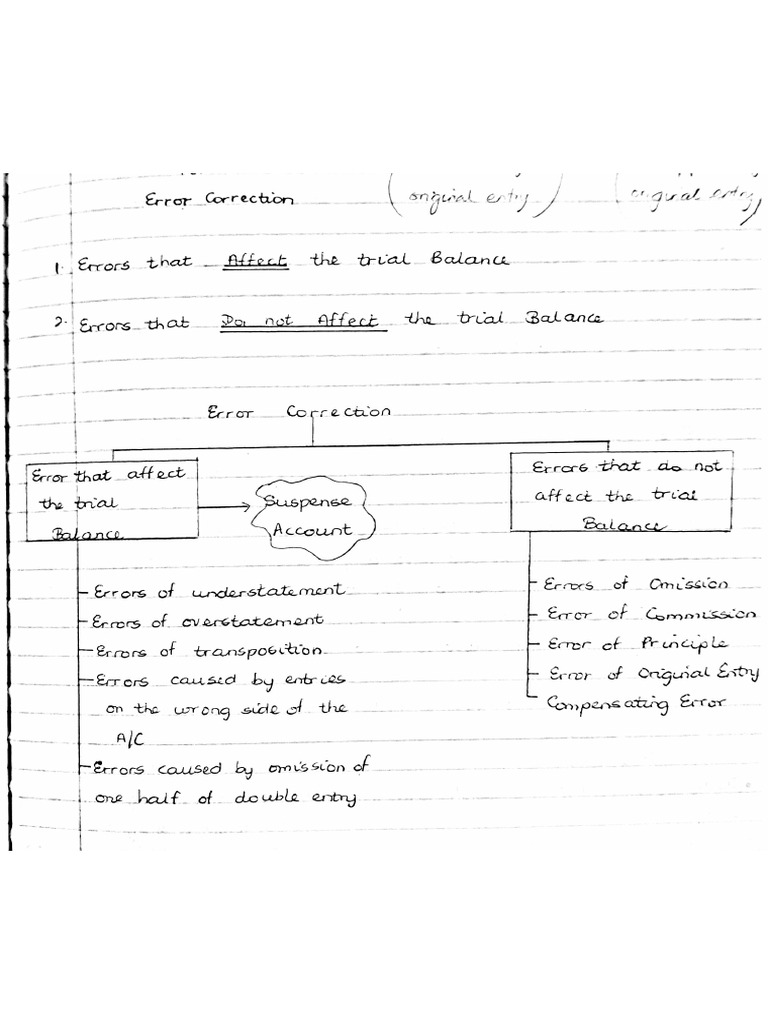 Error Correction (original entry) (original entry)
1. Errors that Affect the trial Balance
2. Errors that Do not Affect the trial Balance
Error Correction
Error that affect
the trial
Balance
Suspense
Account
Errors that do not
affect the trial
Balance
Errors of understatement
Errors of overstatement
Errors of transposition
Errors caused by entries
on the wrong side of the
A/C
Errors caused by omission of
one half of double entry
Errors of Omission
Error of Commission
Error of Principle
Error of Original Entry
Compensating Error